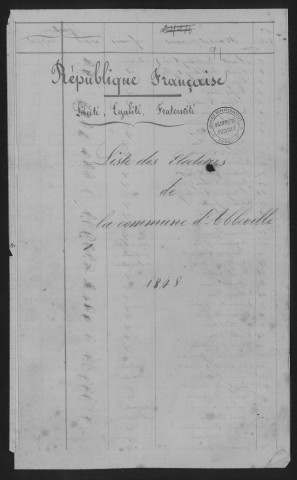 91
République Française
Liberté, Egalité, Fraternité
Liste des Electeurs
de
la commune d'Abbeville
1848